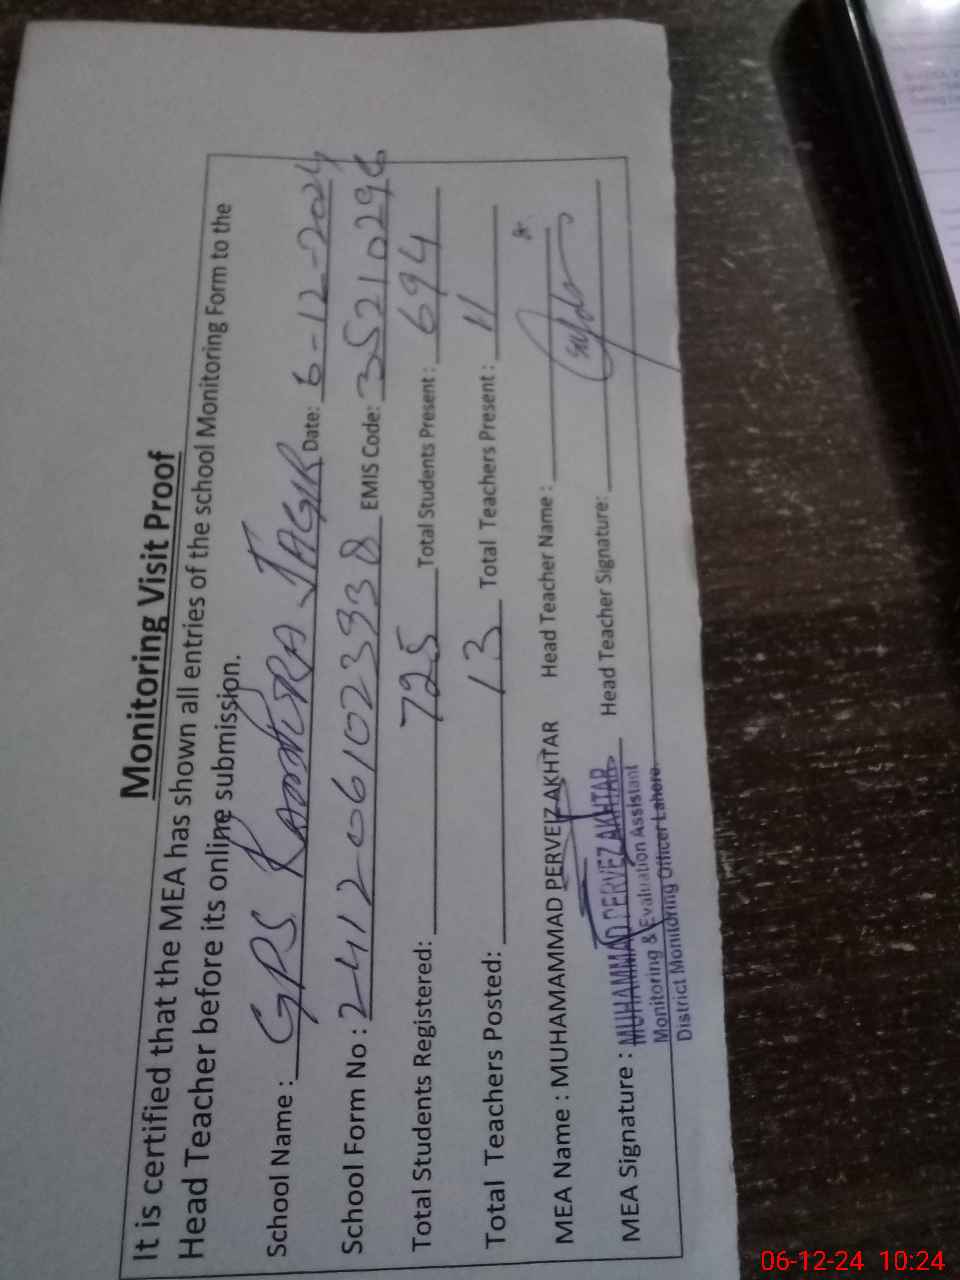 Monitoring Visit Proof
It is certified that the MEA has shown all entries of the school Monitoring Form to the
Head Teacher before its online submission.
School Name : GPS KAMHRA JAGIR Date: 6-12-2024
School Form No : 2412-06102338 EMIS Code: 35210296
Total Students Registered: 725 Total Students Present : 694
Total Teachers Posted: 13 Total Teachers Present : 11
MEA Name : MUHAMAMMAD PERVEIZ AKHTAR Head Teacher Name :
MEA Signature : MUHAMMAD PERVEZ AKHTAR Head Teacher Signature:
Monitoring & Evaluation Assistant
District Monitoring Officer Lahore.
06-12-24 10:24